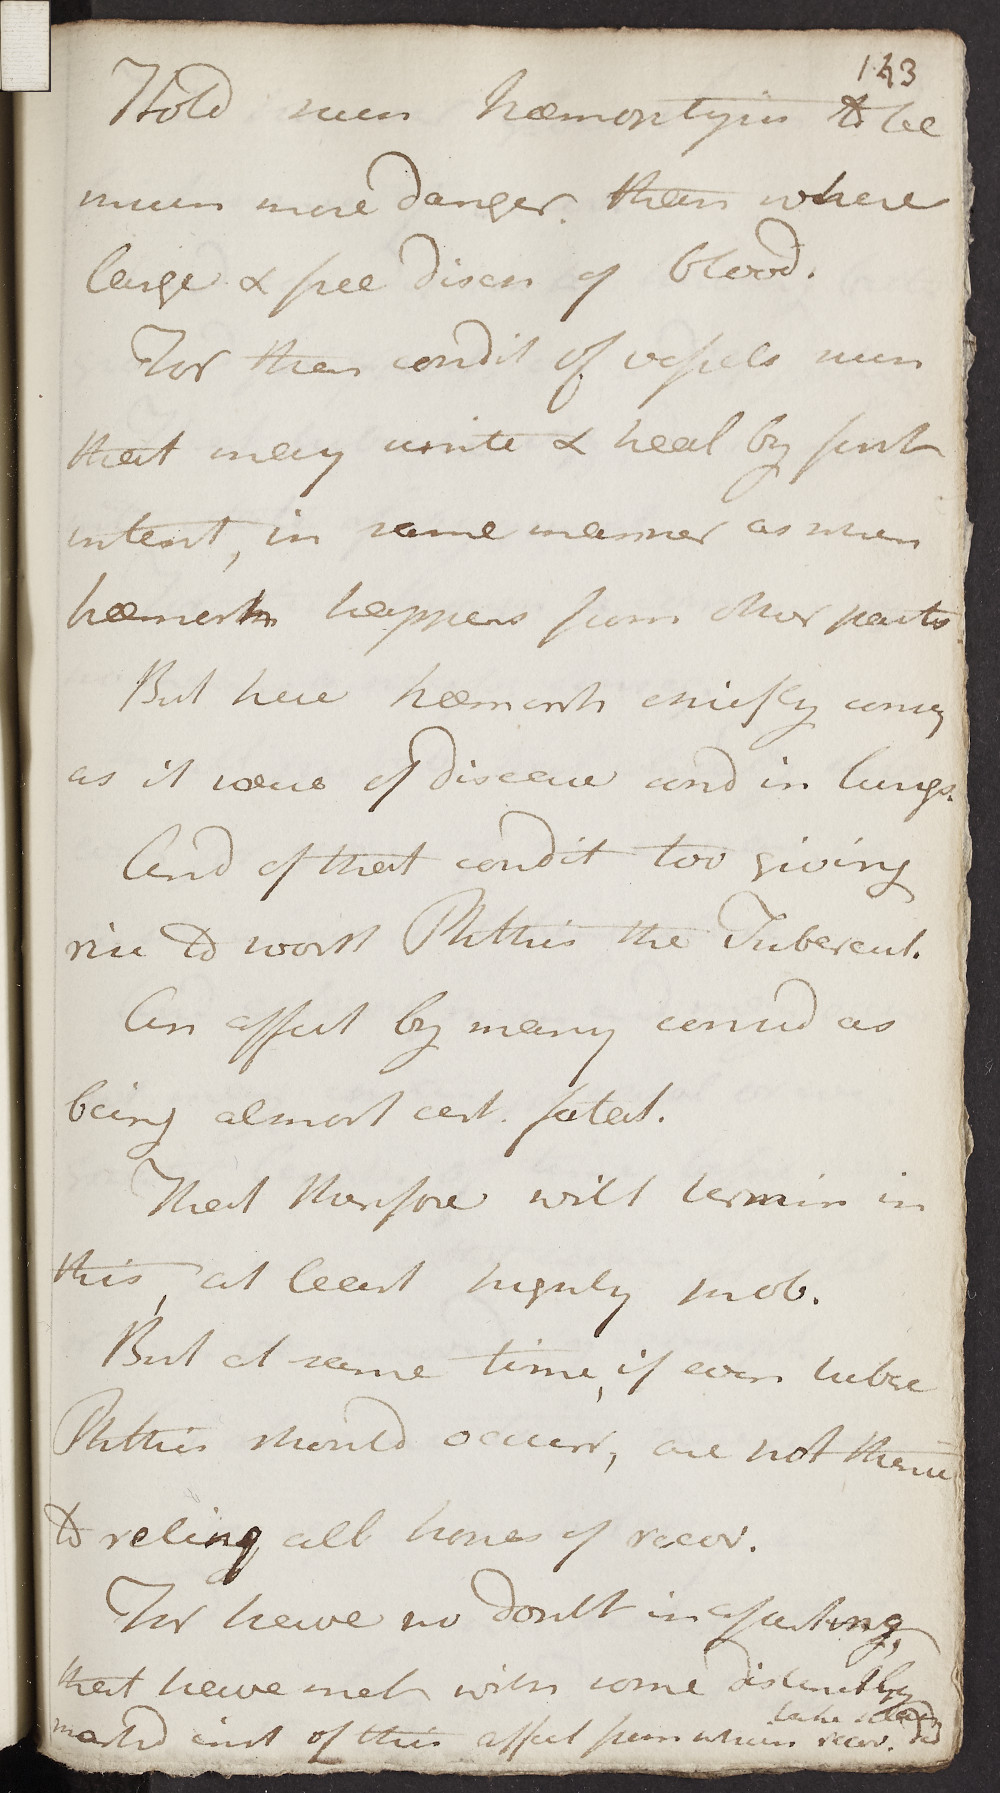 143
Hold such hæmoptysis to be
much more danger. than where
large & free disch of blood.
For then condit of vessels such
that may unite & heal by first
intent, in same manner as when
hæmorrh happens from other parts
But here hæmorrh chiefly conseq
as it were of disease and in lungs.
And of that condit too giving
rise to worst Phthisis the Tubercul.
An affect by many consid as
being almost cert. fatal.
That therefore will termin in
this, at least highly prob.
But at same time, if even tuberc
Phthisis should occurr, are not thence
to relinq all hopes of recov.
For have no doubt in asserting,
that have met with some distinctly
marked inst of this affect from which recov.